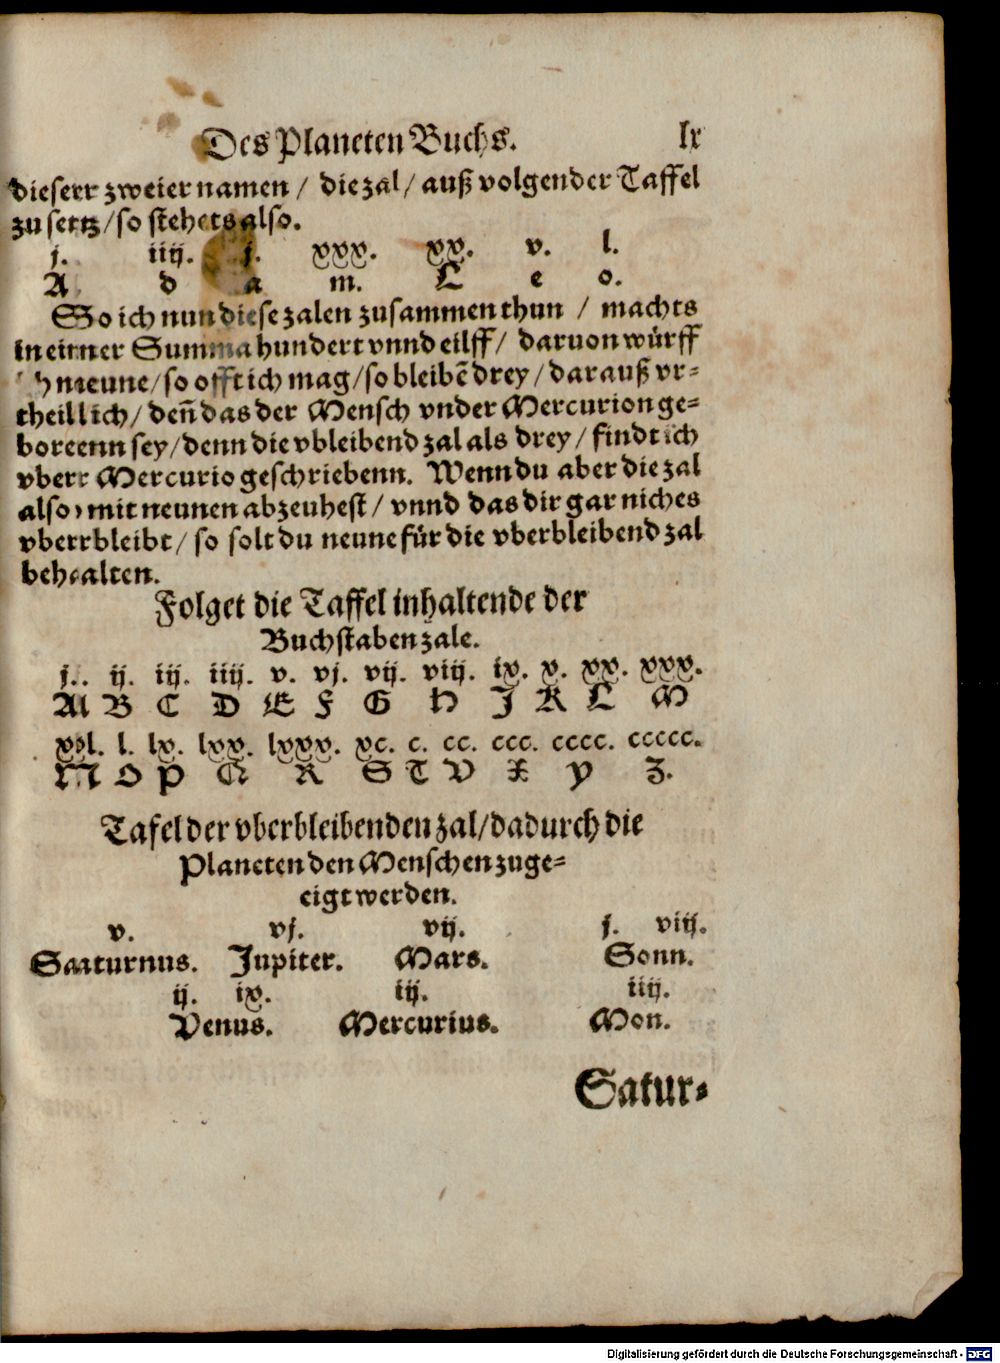 Des Planeten Buchs. lx
dieserr zweier namen / die zal / auß volgender Taffel
zu setz / so stehets also.
j. iiij. j. xxx. xx. v. l.
A d a m. L e o.
So ich nun diese zalen zusammen thun / machts
in einner Summa hundert vnnd eilff / daruon würff
neune / so offt ich mag / so bleibē drey / darauß vr-
theil lich / deñ das der Mensch vnder Mercurion ge-
boreenn sey / denn die vbleibend zal als drey / findt ich
vberr Mercurio geschriebenn. Wenn du aber die zal
also mit neunen abzeuhest / vnnd das dir gar niches
vberrbleibt / so solt du neune für die vberbleibend zal
behealten.
Folget die Taffel inhaltende der
Buchstaben zale.
j. ij. iij. iiij. v. vj. vij. viij. ix. x. xx. xxx.
A B C D E F G H J K L M
xl. l. lx. lxx. lxxx. xc. c. cc. ccc. cccc. ccccc.
N O P Q R S T V X Y Z.
Tafel der vberbleibenden zal / dadurch die
Planeten den Menschen zuge-
eigt werden.
v. vj. vij. j. viij.
Saaturnus. Jupiter. Mars. Sonn.
ij. ix. iij. iiij.
Venus. Mercurius. Mon.
Satur-
Digitalisierung gefördert durch die Deutsche Forschungsgemeinschaft - DFG